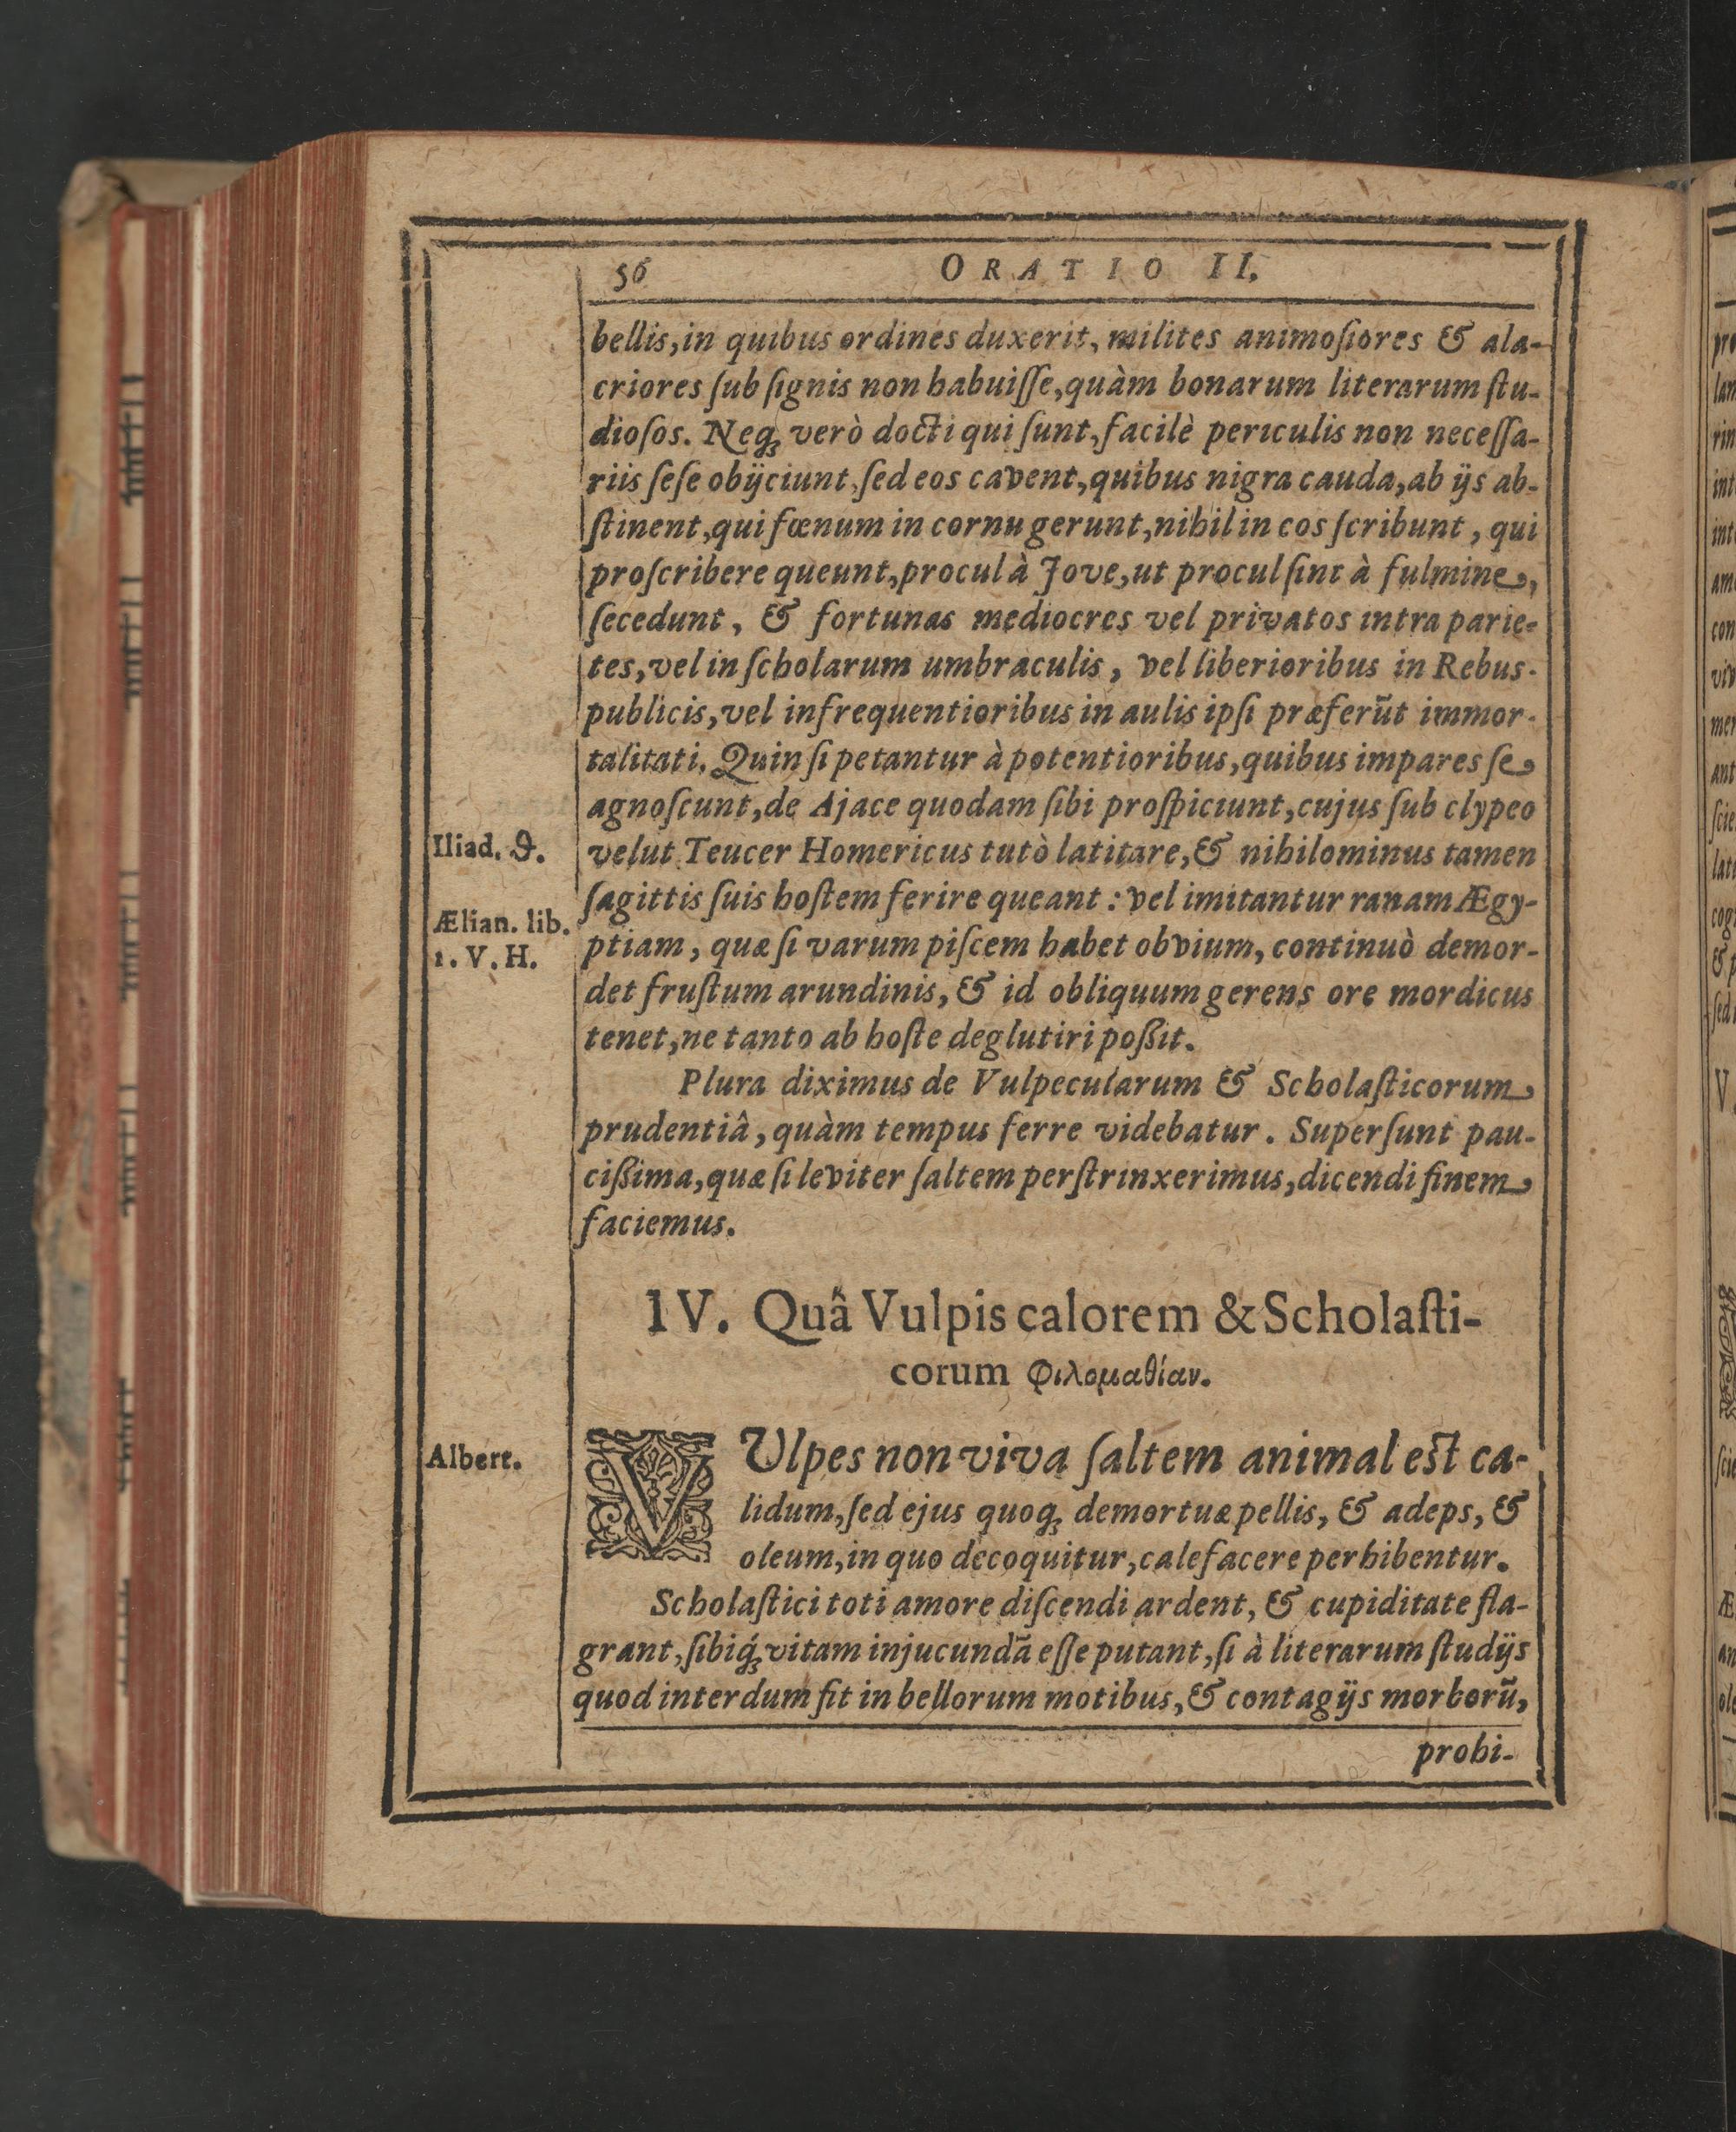 56 ORATIO II.
bellis, in quibus ordines duxerit, milites animoſiores & ala-
criores ſub ſignis non habuiſſe, quàm bonarum literarum ſtu-
dioſos. Neq́; verò docti qui ſunt, facilè periculis non neceſſa-
riis ſeſe obijciunt, ſed eos cavent, quibus nigra cauda, ab ijs ab-
ſtinent, qui fœnum in cornu gerunt, nihil in eos ſcribunt, qui
proſcribere queunt, procul à Jove, ut procul ſint à fulmine,
ſecedunt, & fortunas mediocres vel privatos intra parie-
tes, vel in ſcholarum umbraculis, vel liberioribus in Rebus-
publicis, vel infrequentioribus in aulis ipſi præferūt immor-
talitati. Quin ſi petantur à potentioribus, quibus impares ſe
agnoſcunt, de Ajace quodam ſibi proſpiciunt, cujus ſub clypeo
Iliad. ϑ.
velut Teucer Homericus tutò latitare, & nihilominus tamen
ſagittis ſuis hoſtem ferire queant: vel imitantur ranam Ægy-
Ælian. lib.
1. V. H.
ptiam, quæ ſi varum piſcem habet obvium, continuò demor-
det fruſtum arundinis, & id obliquum gerens ore mordicus
tenet, ne tanto ab hoſte deglutiri poßit.
Plura diximus de Vulpecularum & Scholaſticorum
prudentiâ, quàm tempus ferre videbatur. Superſunt pau-
cißima, quæ ſi leviter ſaltem perſtrinxerimus, dicendi finem
faciemus.
IV. Quâ Vulpis calorem & Scholaſti-
corum Φιλομαθίαν.
Albert.
VUlpes non viva ſaltem animal eſt ca-
lidum, ſed ejus quoq; demortuæ pellis, & adeps, &
oleum, in quo decoquitur, calefacere perhibentur.
Scholaſtici toti amore diſcendi ardent, & cupiditate fla-
grant, ſibiq́; vitam injucundā eſſe putant, ſi à literarum ſtudijs
quod interdum fit in bellorum motibus, & contagijs morborū,
probi-